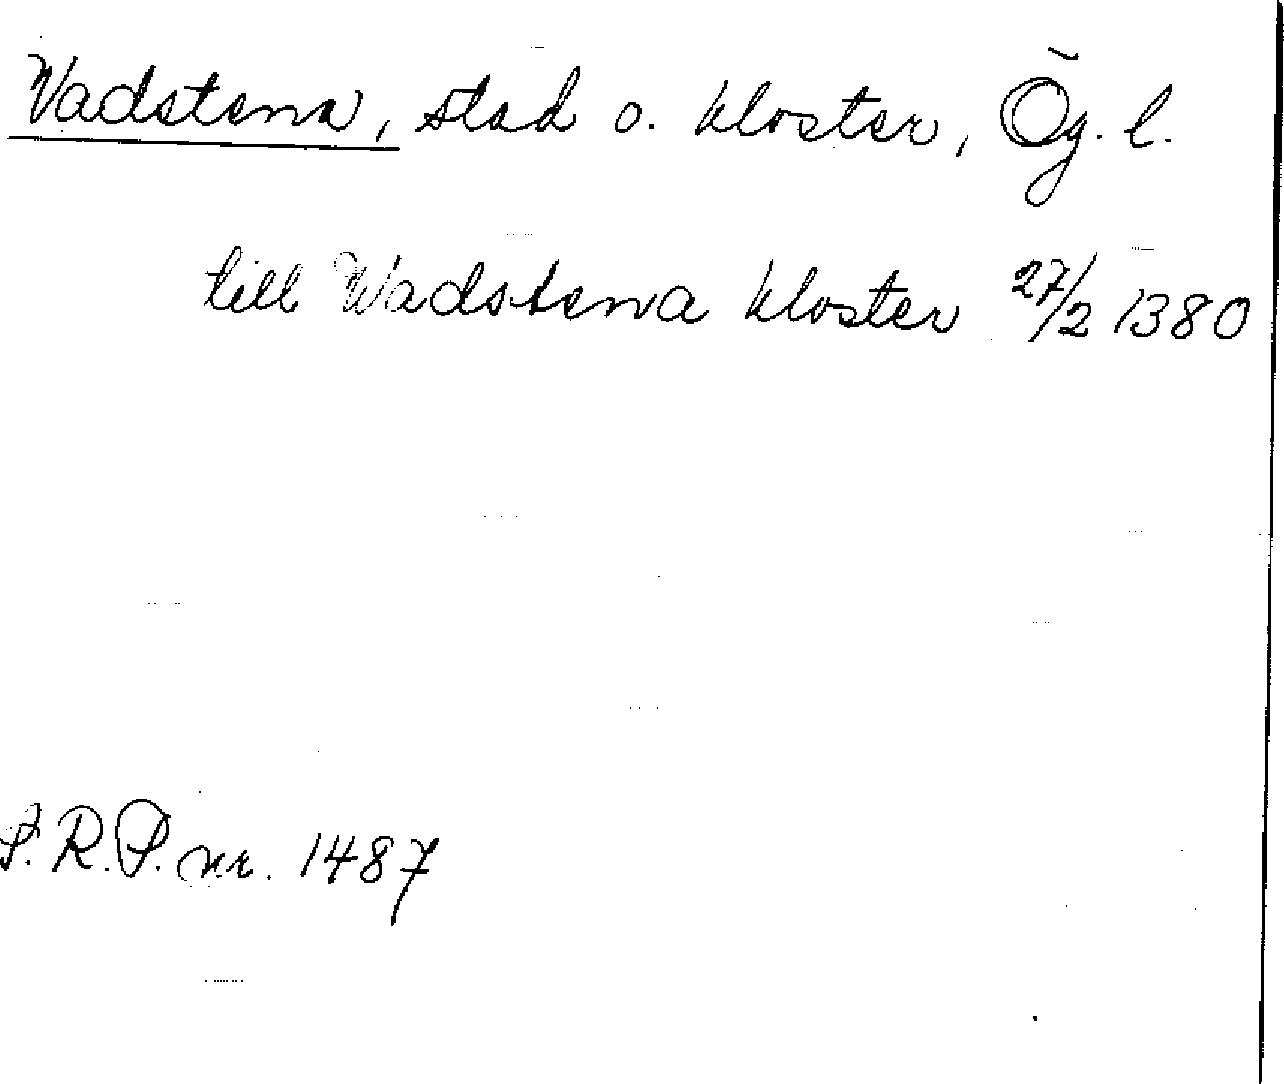 Vadstena, stad o. kloster, Ög. l.
till Wadstena kloster 27/2 1380
S.R.P. nr. 1487